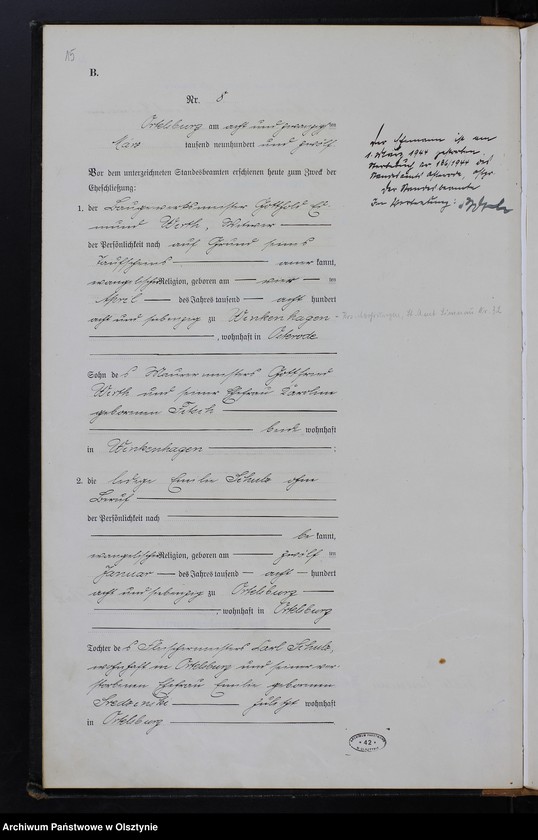 15
B.
Nr. 8
Ortelsburg am acht und zwanzigten
März tausend neunhundert und zwölf
Vor dem unterzeichneten Standesbeamten erschienen heute zum Zweck der
Eheschließung:
1. der Baugewerksmeister Gotthold
Werth, Witwer
der Persönlichkeit nach auf Grund seines
Taufscheins anerkannt,
evangelischer Religion, geboren am vier ten
April des Jahres tausend acht hundert
acht und siebenzig zu Winkenhagen
, wohnhaft in Osterode
Sohn des Maurermeisters Gottfried
Werth und seiner Ehefrau Karoline
geborenen
beide wohnhaft
in Winkenhagen ;
2. die ledige Emilie Schulz ohne
Beruf
der Persönlichkeit nach
bekannt,
evangelischer Religion, geboren am zwölf ten
Januar des Jahres tausend acht hundert
acht und siebenzig zu Ortelsburg
, wohnhaft in Ortelsburg
Tochter des Fleischermeisters Carl Schulz,
wohnhaft in Ortelsburg und seiner ver-
storbenen Ehefrau Emilie geborenen
zuletzt wohnhaft
in Ortelsburg
Der Ehemann ist am
1. März 1944 gestorben.
Sterbebuch Nr 136/1944 des
Standesamts Osterode, Ostpr.
Der Standesbeamte
In Vertretung:
42
Archiwum Państwowe w Olsztynie